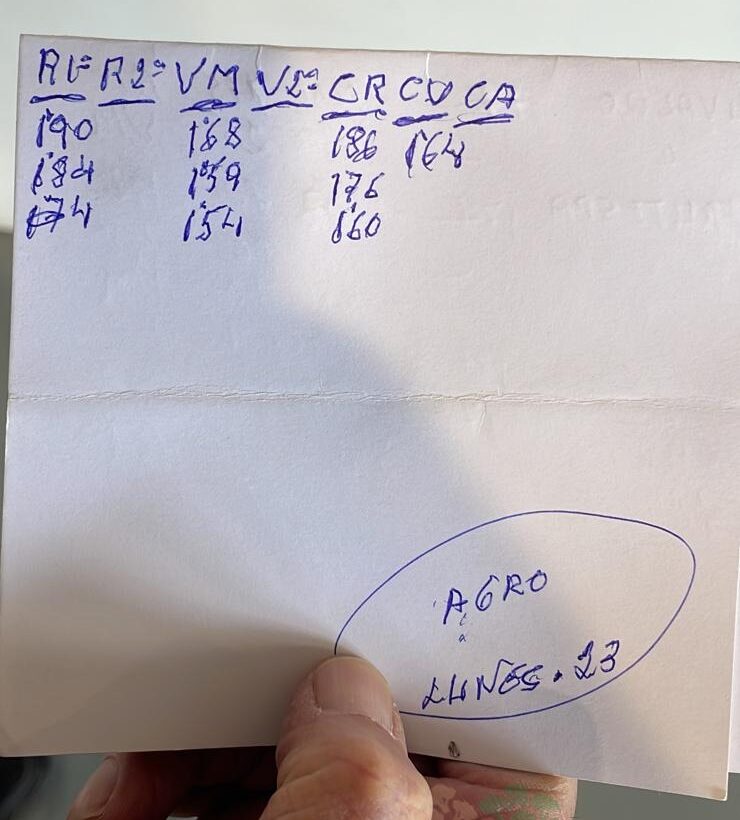 R1ª R2ª VM V2ª CR CV CA
190 168 186 164
184 159 176
174 154 160
AGRO
LUNES. 23